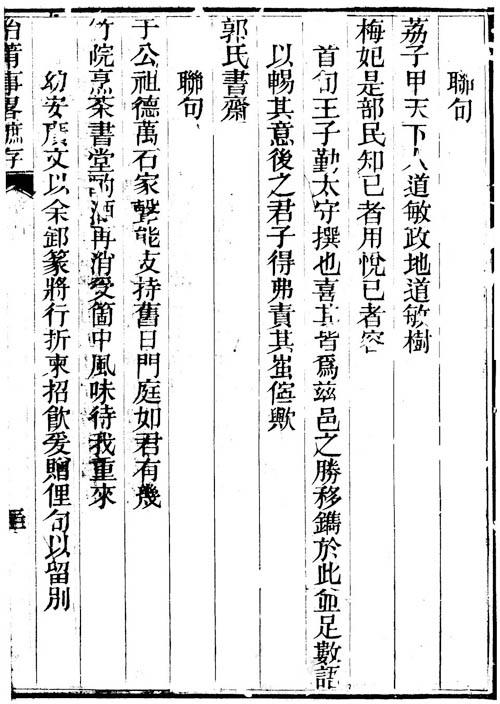 聯句
荔子甲天下人道敏政地道敏樹
梅妃是部民知己者用悅己者容
首句王子勤太守撰也喜其皆爲茲邑之勝移鐫於此並足數語
以暢其意後之君子得弗責其僭歟
郭氏書齋
聯句
于公祖德萬石家聲能支持舊日門庭如君有幾
竹院烹茶書堂酒再消受箇中風味待我重來
幼安廣文以余卸篆將行折柬招飲爰贈俚句以留別
治莆事畧庶存